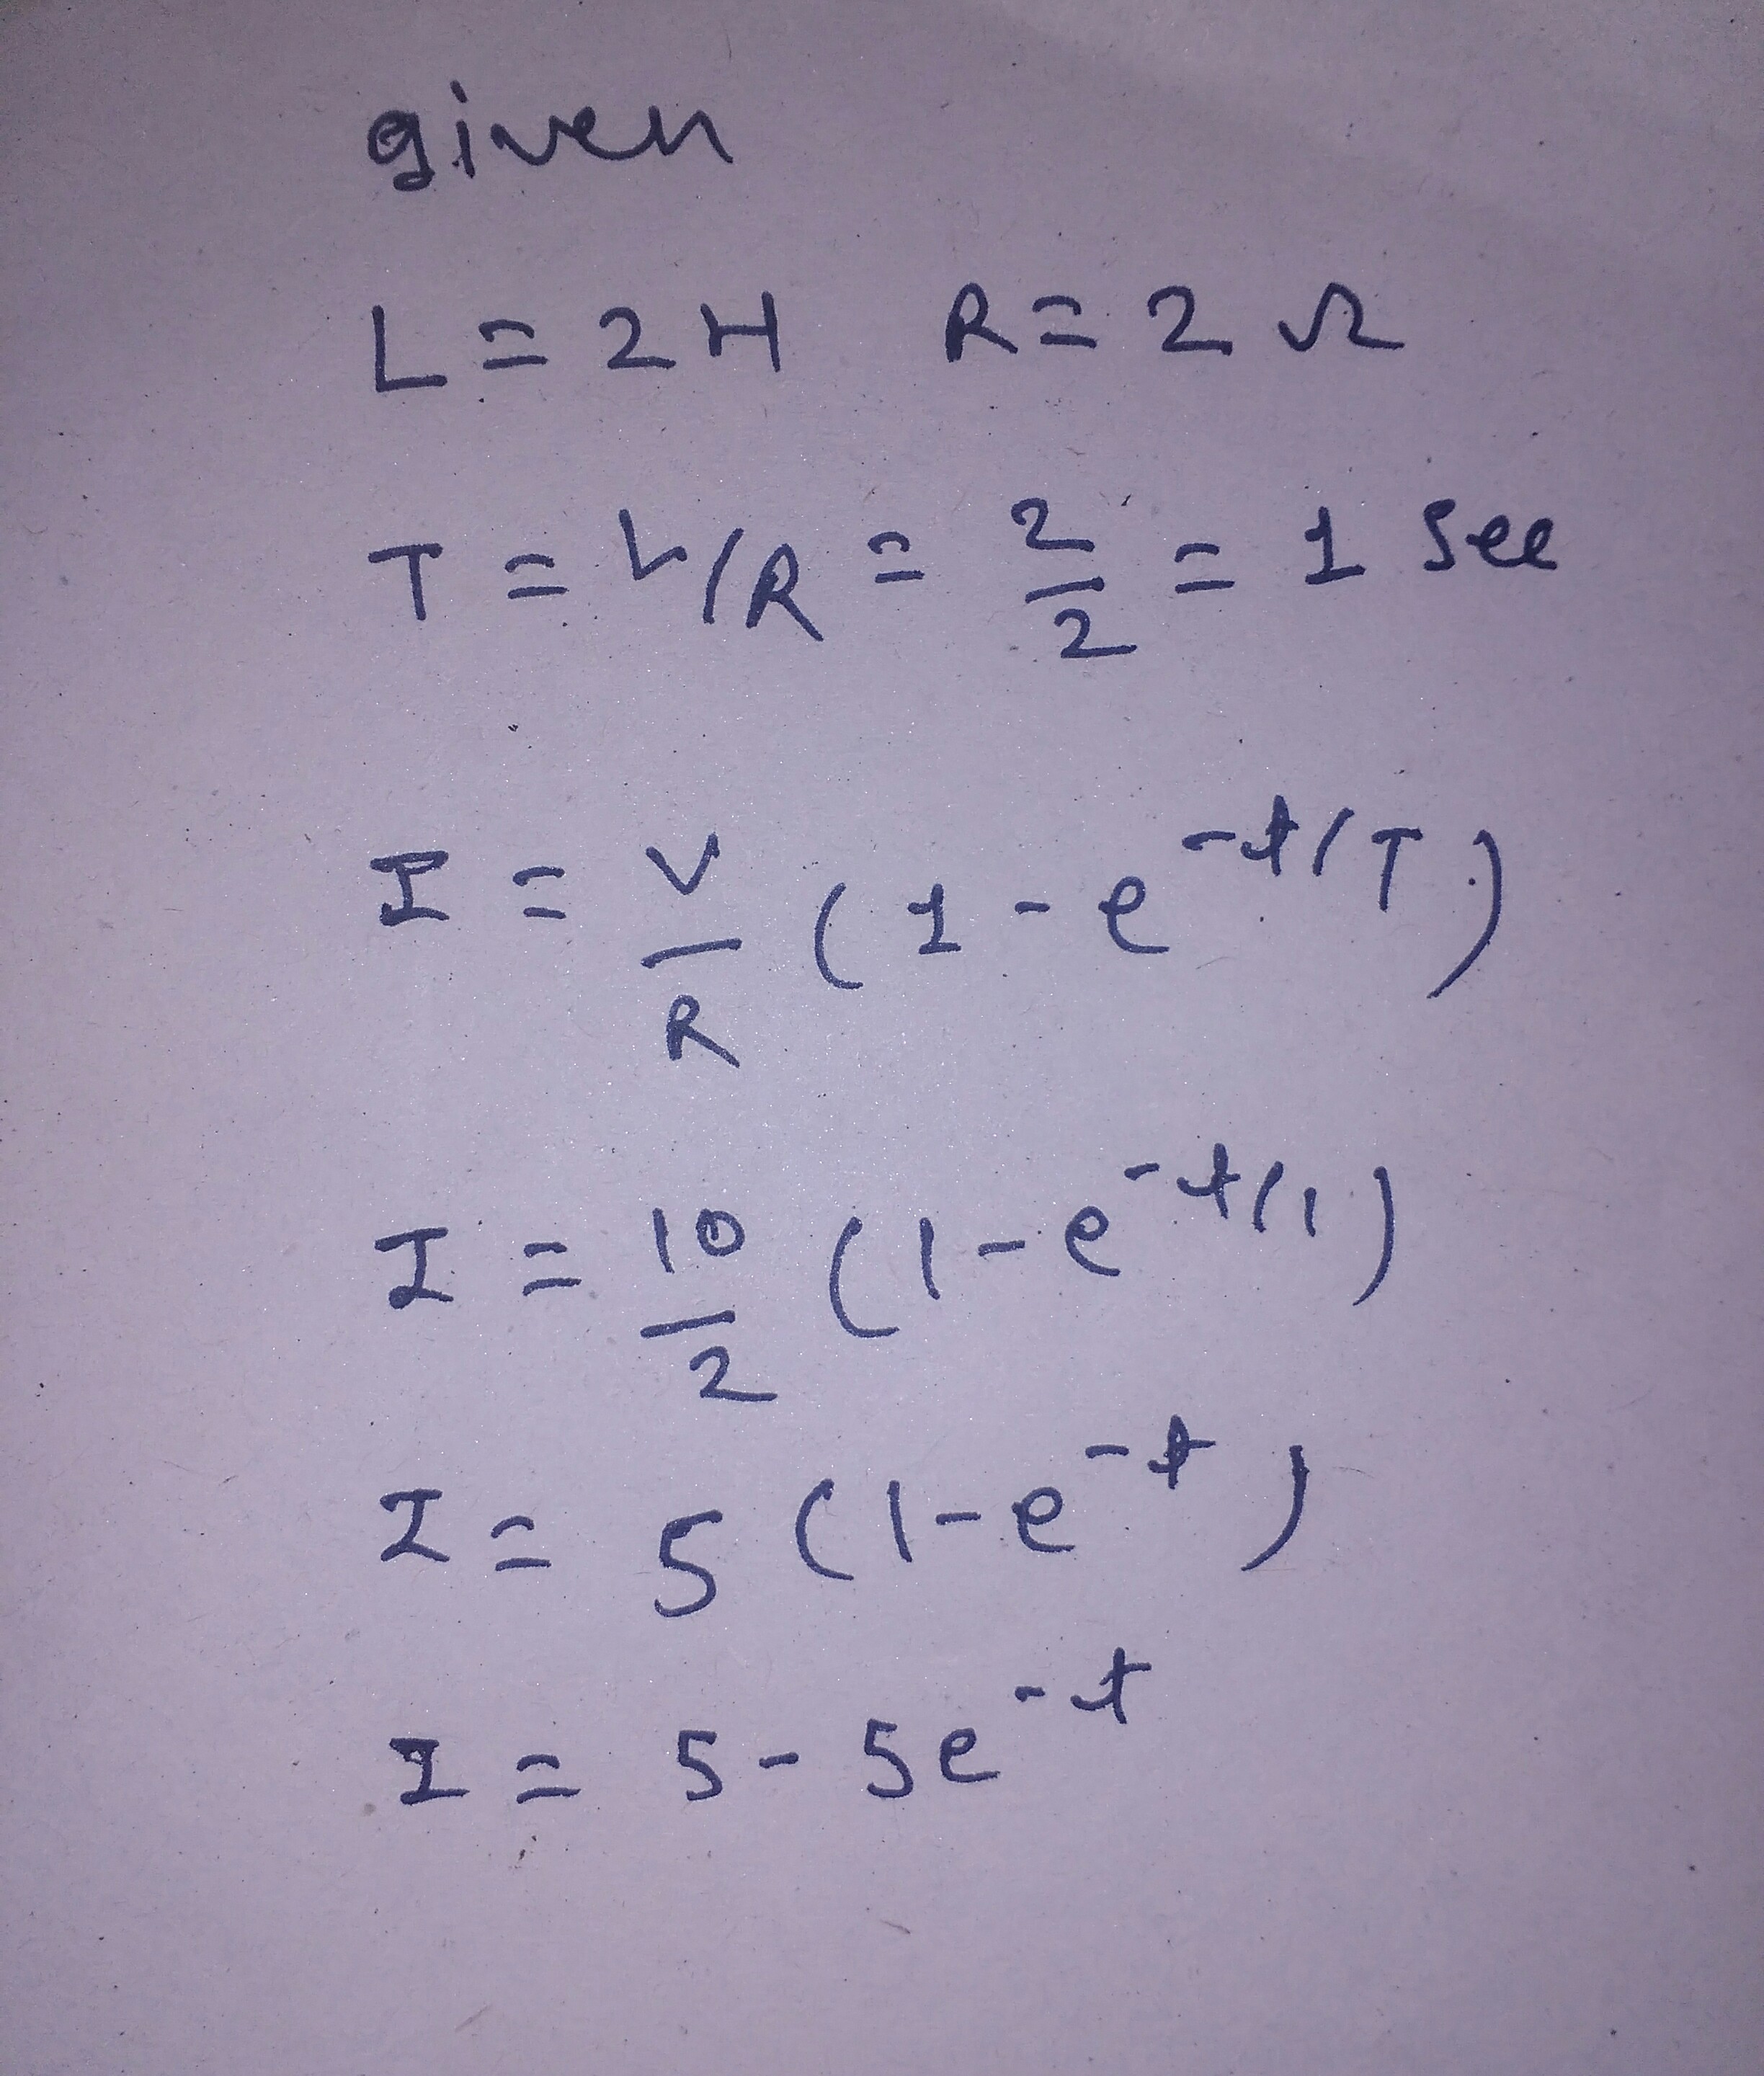 given
L = 2H R = 2 Ω
T = L/R = 2/2 = 1 sec
I = V/R (1 - e^-t/T)
I = 10/2 (1 - e^-t/1)
I = 5 (1 - e^-t)
I = 5 - 5e^-t